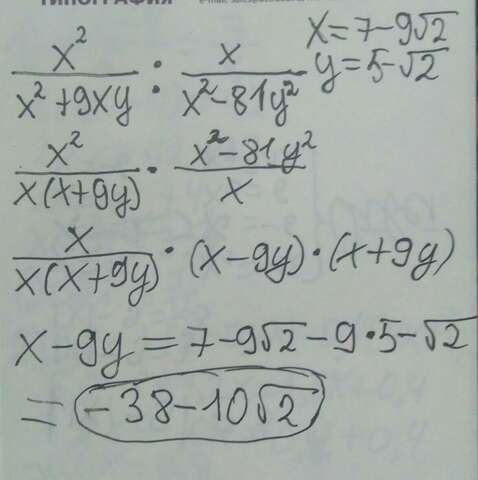 ТИПОГРАФИЯ
x²/(x²+9xy) : x/(x²-81y²) x=7-9√2
y=5-√2
x²/(x(x+9y)) · (x²-81y²)/x
x/(x(x+9y)) · (x-9y) · (x+9y)
x-9y=7-9√2-9·5-√2
= -38-10√2